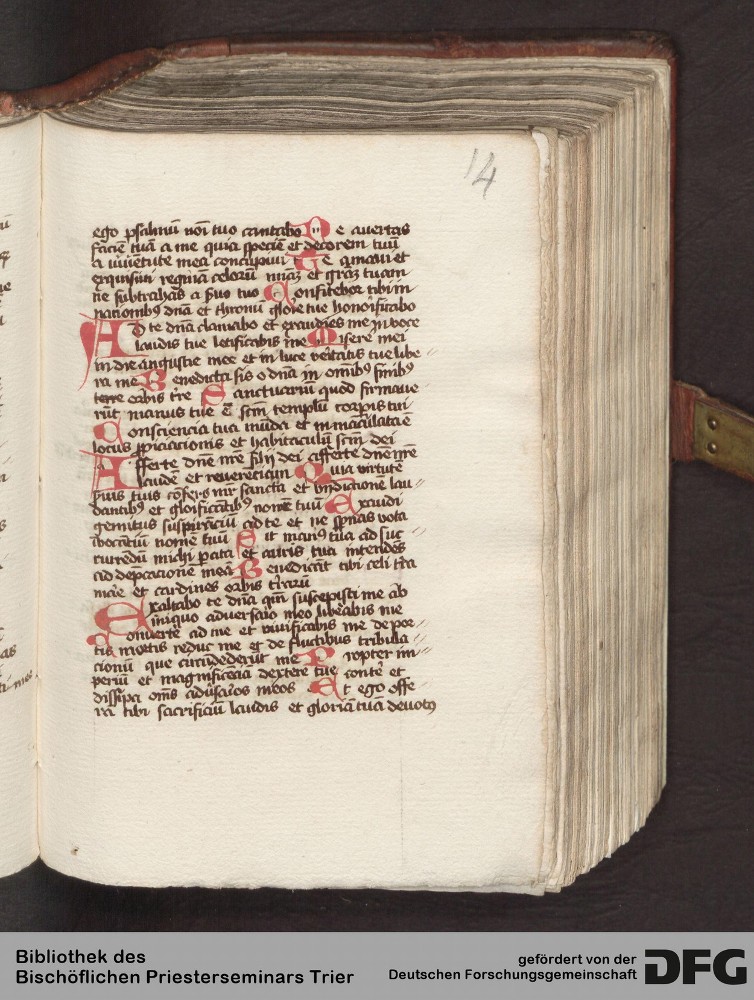 14
ego psalmū noī tuo cantabo Ne auertas
faciē tuā a me quia speciē et decorem tuū
a iuuētute mea concupiui Te amaui et
exquisiui reginā celorū et grāz tuam
ne subtrahas a suo tuo Confitebor tibi in
nationibꝰ dn̄a et thronū glorie tue honorificabo
Ad te dn̄a clamabo et exaudies me in voce
laudis tue letificabis me Miserē mei
in die angustie mee et in luce veritatis tue libe
ra me Benedicta sis o dn̄a in omnibꝰ finibꝰ
terre orbis tr̄e Sanctuariū quod firmaue
rūt manus tue ē scm̄ templū corporis tui
Consciencia tua mūda et immaculata ē
locus et habitaculū scm̄ dei
Afferte dn̄e nr̄e filij dei afferte dn̄e nr̄e
laudē et reuerēciam Quia virtutē
tuis sancta et lau
dantibꝰ et glorificātibꝰ nomē tuū Exaudi
gemitus suspirāciū ad te et ne spnas vota
inuocātiū nomē tuū Sit manꝰ tua ad suc
currēdū michi et auris tua intendēs
ad dep̄cacionē meā Benedicāt tibi celi t̄ra
mar̄e et cardines orbis t̄rarū
Exaltabo te dn̄a qm̄ suscepisti me ab
iniquo aduersario meo liberabis me
Conuerte ad me et viuificabis me de por
tis mortis reduc me et de fluctibus tribula
cionū que circūdederūt me Propter im
periū et magnificēcia dextere tue conte et
dissipa om̄s aduersarios meos Et ego offe
ra tibi sacrificiū laudis et gloriā tuā deuotꝰ
Bibliothek des
Bischöflichen Priesterseminars Trier
gefördert von der
Deutschen Forschungsgemeinschaft
DFG